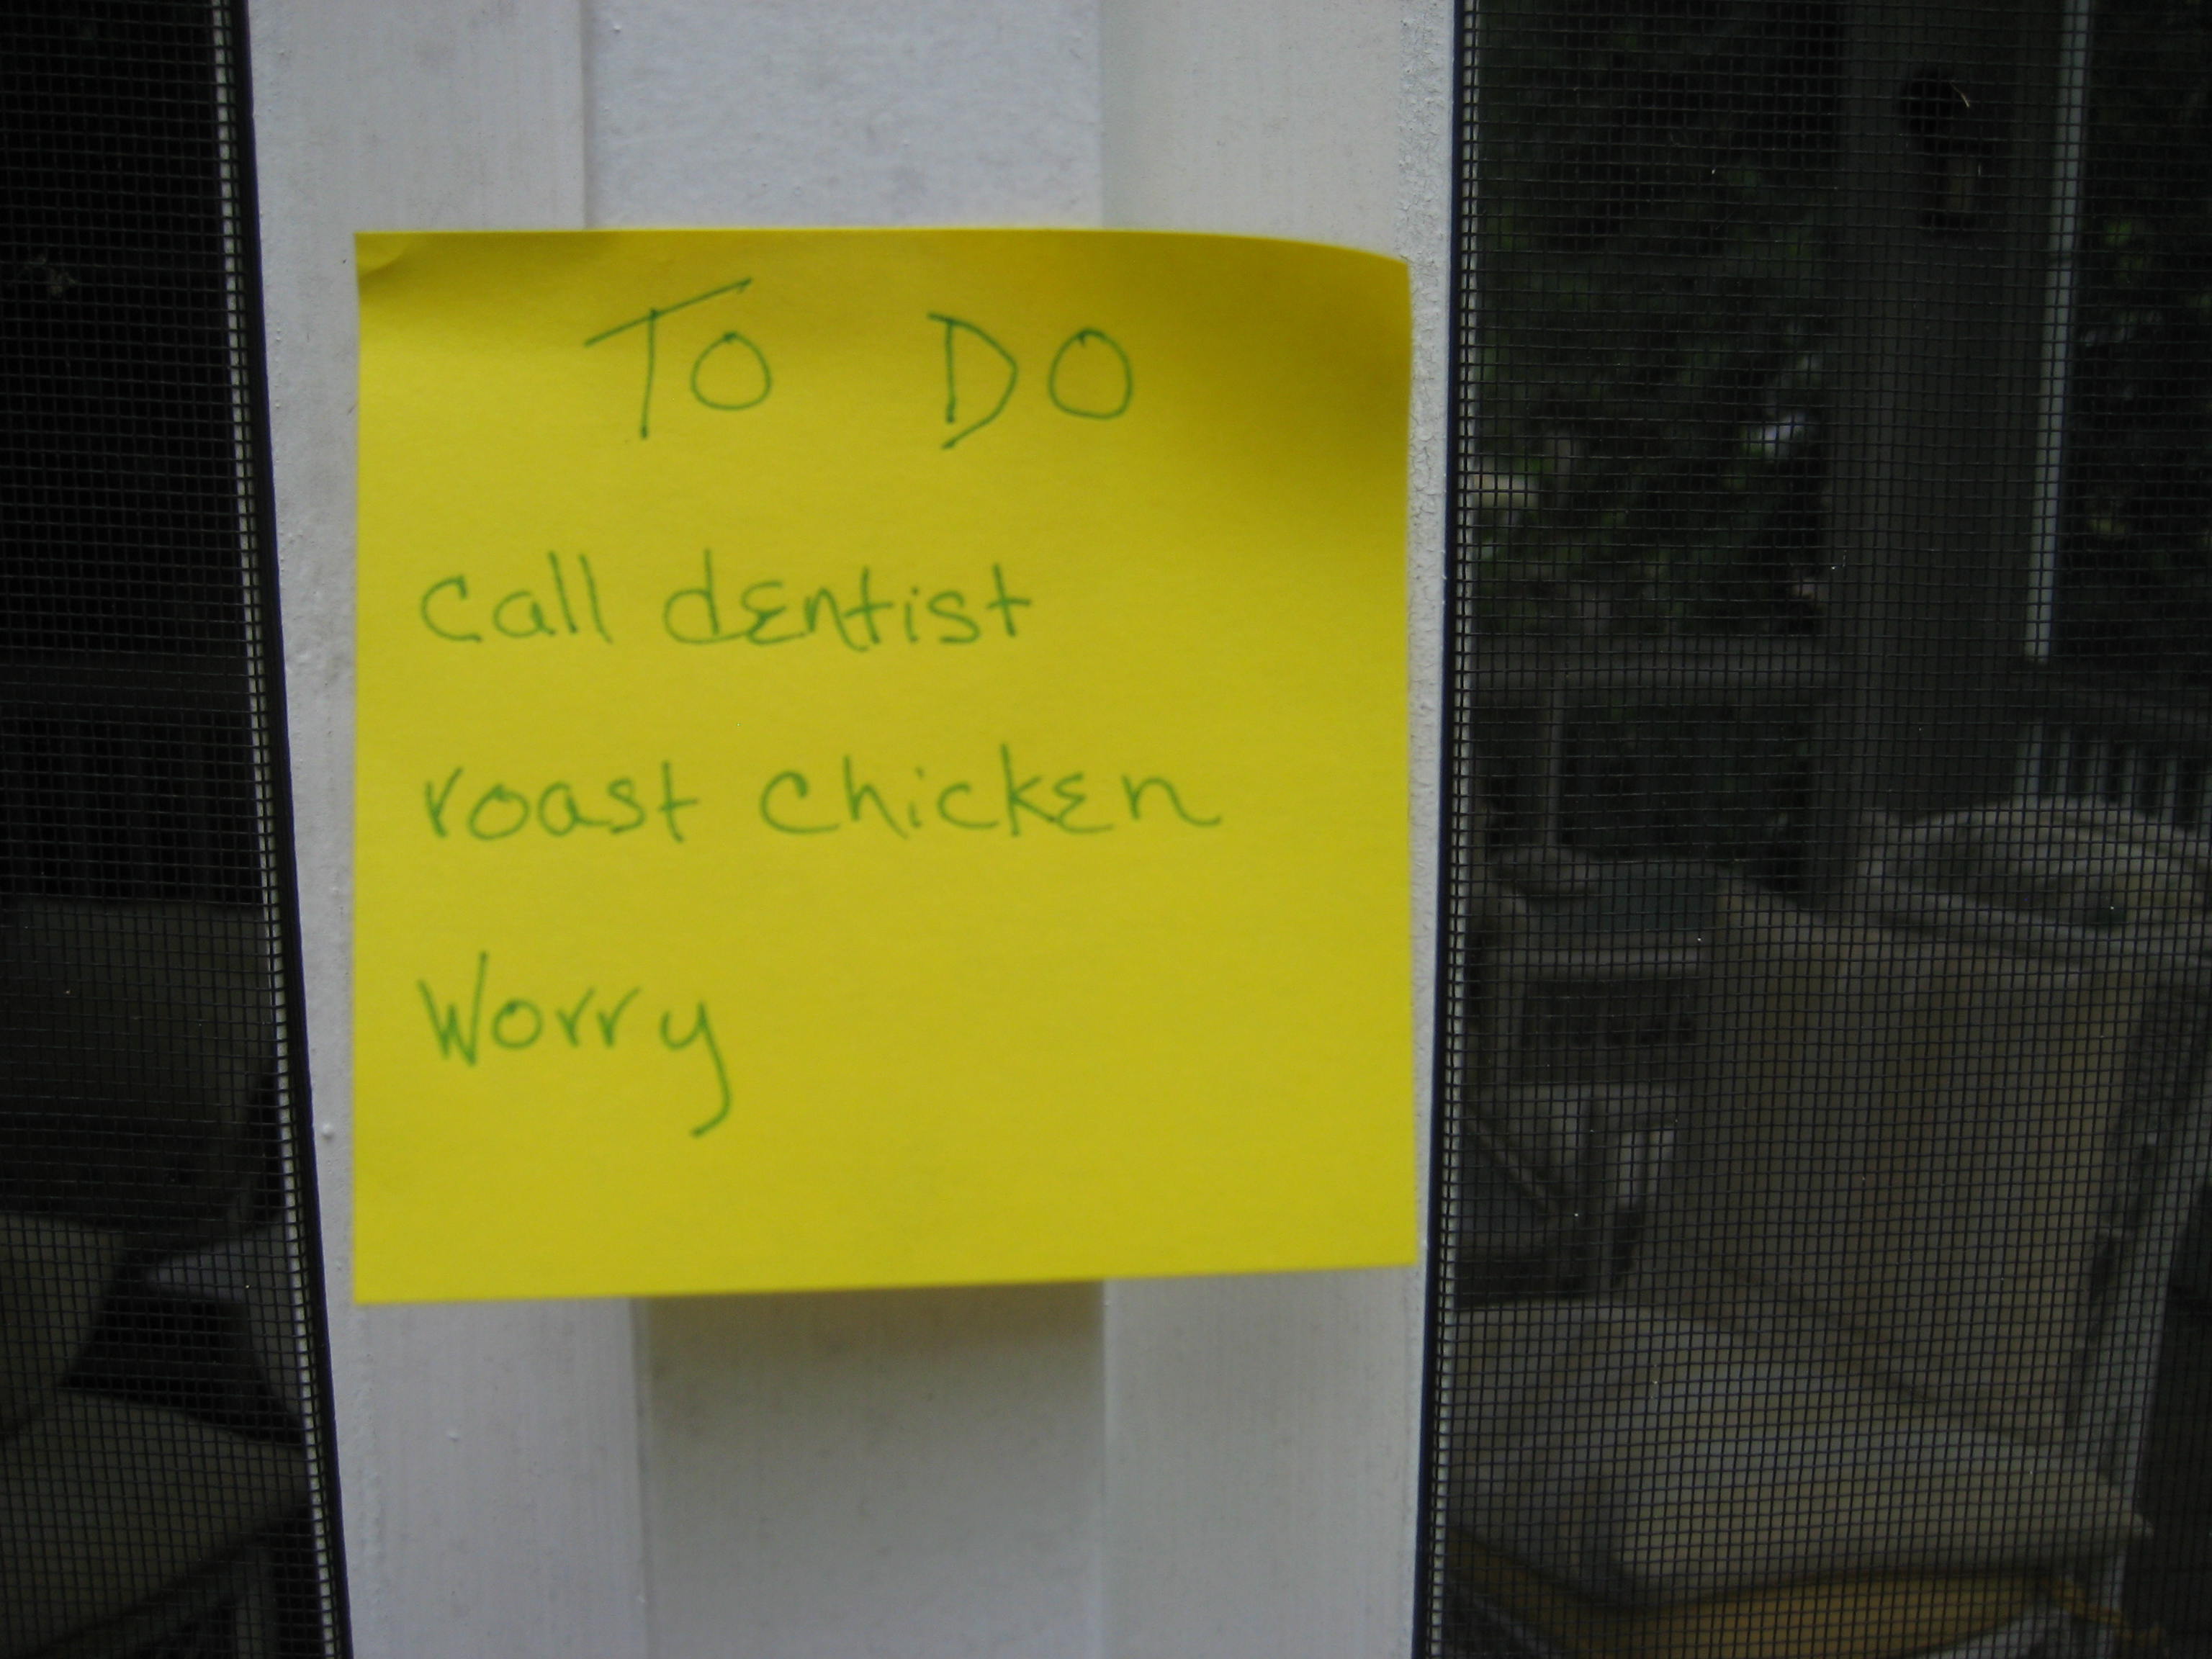 TO DO
call dentist
roast chicken
Worry